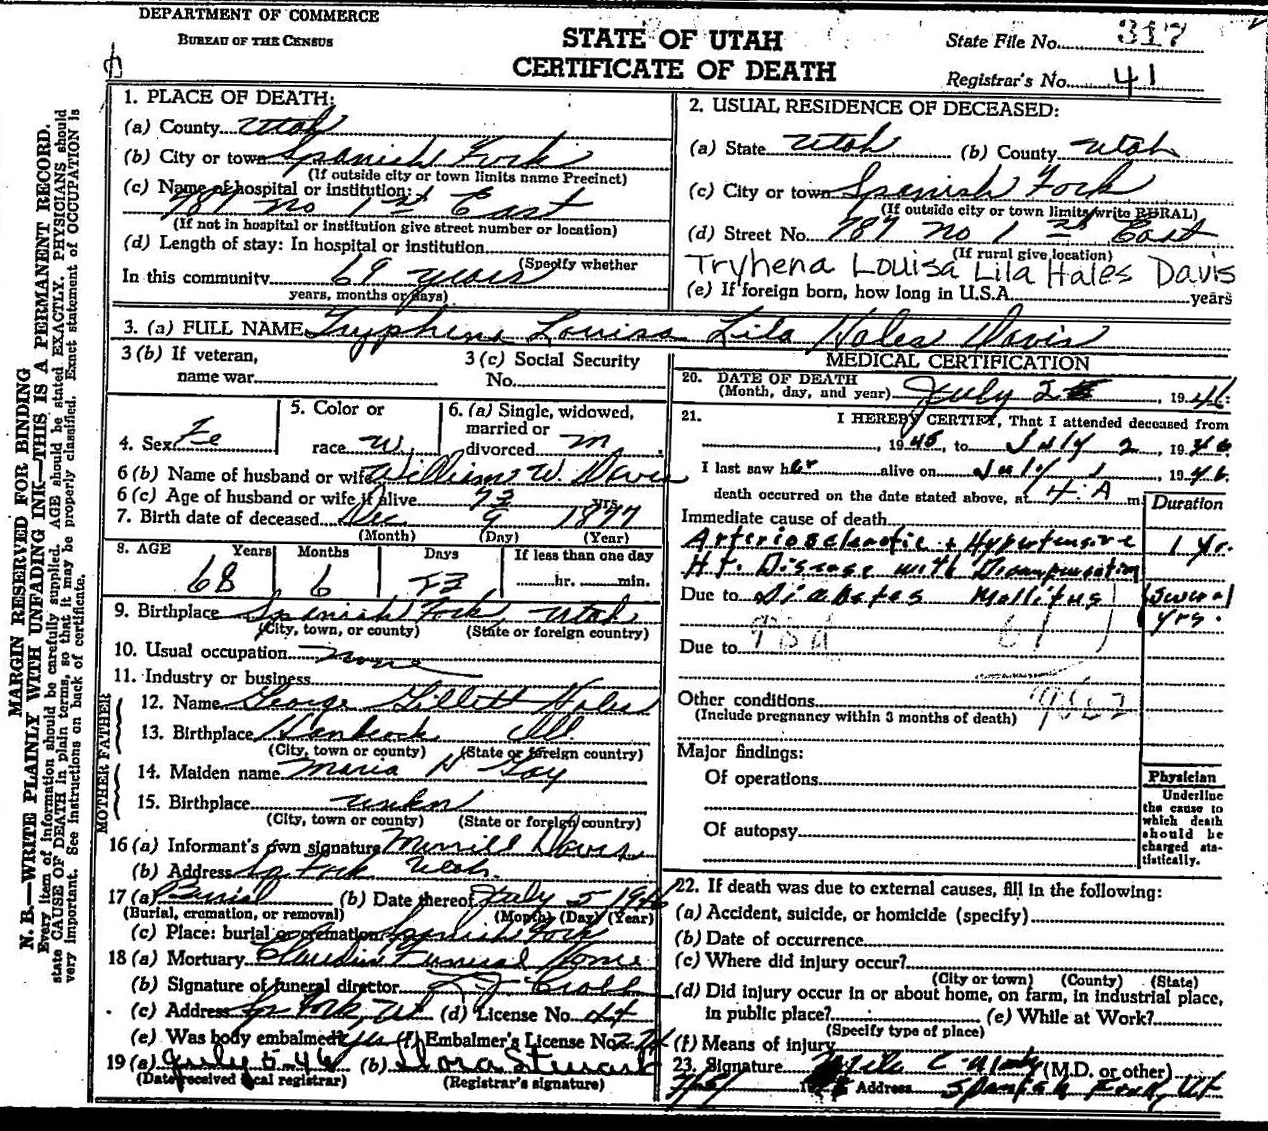 DEPARTMENT OF COMMERCE
BUREAU OF THE CENSUS
STATE OF UTAH
CERTIFICATE OF DEATH
State File No. 317
Registrar's No. 41
MARGIN RESERVED FOR BINDING
N. B.—WRITE PLAINLY WITH UNFADING INK—THIS IS A PERMANENT RECORD.
Every item of information should be carefully supplied. AGE should be stated EXACTLY. PHYSICIANS should
state CAUSE OF DEATH in plain terms, so that it may be properly classified. Exact statement of OCCUPATION is
very important. See instructions on back of certificate.
1. PLACE OF DEATH:
(a) County Utah
(b) City or town Spanish Fork
(If outside city or town limits name Precinct)
(c) Name of hospital or institution:
787 no 1st East
(If not in hospital or institution give street number or location)
(d) Length of stay: In hospital or institution
(Specify whether
In this community 69 years
years, months or days)
2. USUAL RESIDENCE OF DECEASED:
(a) State Utah (b) County Utah
(c) City or town Spanish Fork
(If outside city or town limits write RURAL)
(d) Street No. 787 no 1st East
(If rural give location)
Tryhena Louisa Lila Hales Davis
(e) If foreign born, how long in U.S.A. years
3. (a) FULL NAME Tryphena Louisa Lila Hales Davis
3 (b) If veteran,
name war
3 (c) Social Security
No.
4. Sex Fe
5. Color or
race W.
6. (a) Single, widowed,
married or
divorced m
6 (b) Name of husband or wife William W. Davis
6 (c) Age of husband or wife if alive 73 yrs.
7. Birth date of deceased Dec 9 1877
(Month) (Day) (Year)
8. AGE Years Months Days If less than one day
68 6 23 hr. min.
9. Birthplace Spanish Fork, Utah
(City, town, or county) (State or foreign country)
10. Usual occupation none
11. Industry or business
FATHER
12. Name George Gillett Hales
13. Birthplace Hancock Ill
(City, town or county) (State or foreign country)
MOTHER
14. Maiden name Maria H Gay
15. Birthplace unkn
(City, town or county) (State or foreign country)
16 (a) Informant's own signature Merrill Davis
(b) Address Sp Fork Utah
17 (a) Burial (b) Date thereof July 5 1946
(Burial, cremation, or removal) (Month) (Day) (Year)
(c) Place: burial or cremation Spanish Fork
18 (a) Mortuary Claudin Funeral Home
(b) Signature of funeral director
(c) Address Sp Fork, Ut (d) License No. 44
(e) Was body embalmed? yes (f) Embalmer's License No.
19 (a) July 5-46 (b) Dora Stewart
(Date received local registrar) (Registrar's signature)
MEDICAL CERTIFICATION
20. DATE OF DEATH
(Month, day, and year) July 2, 1946.
21. I HEREBY CERTIFY, That I attended deceased from
, 1945, to July 2 1946
I last saw her alive on July 1, 1946.
death occurred on the date stated above, at 4 A m.
Duration
Immediate cause of death
Arteriosclerotic + Hypertensive 1 yr.
Ht. Disease with Decompensation
Due to Diabetes Mellitus (Several
yrs.
Due to
61
Other conditions
(Include pregnancy within 3 months of death)
Major findings:
Of operations
Of autopsy
Physician
Underline
the cause to
which death
should be
charged sta-
tistically.
22. If death was due to external causes, fill in the following:
(a) Accident, suicide, or homicide (specify)
(b) Date of occurrence
(c) Where did injury occur?
(City or town) (County) (State)
(d) Did injury occur in or about home, on farm, in industrial place,
in public place? (e) While at Work?
(Specify type of place)
(f) Means of injury
23. Signature (M.D. or other)
Address Spanish Fork, Ut